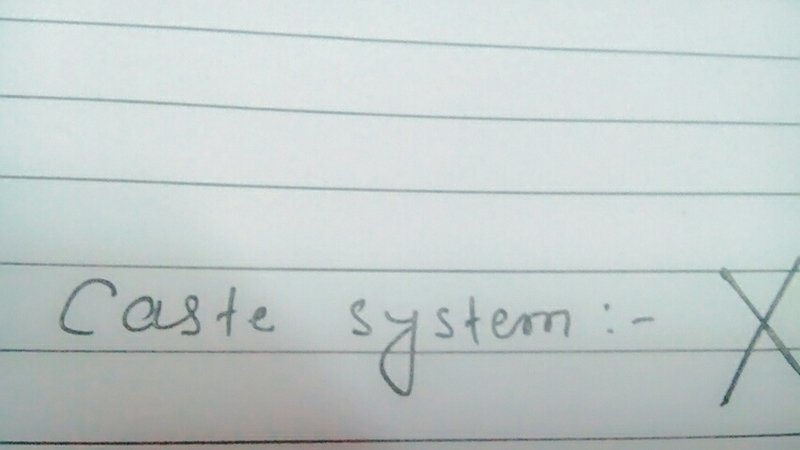 Caste system :- X